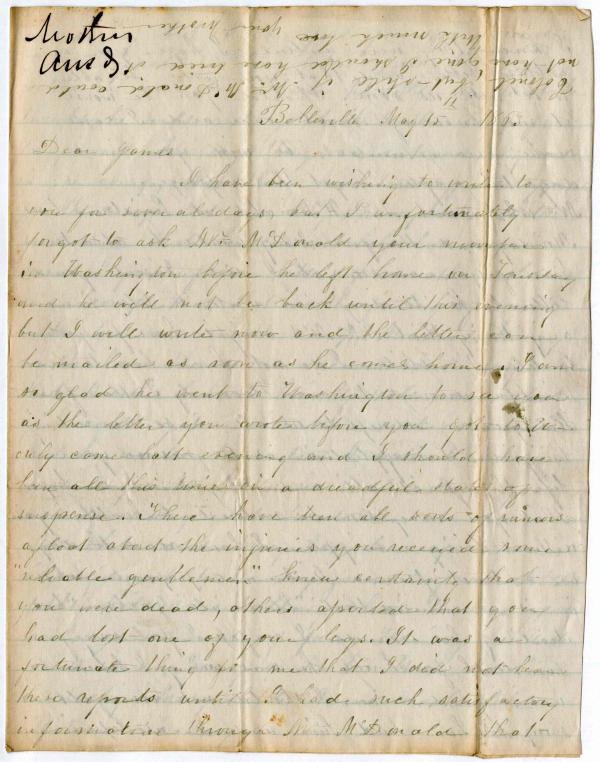 Mother
Ans d.
With much love
your Mother
not have gone I should have tried it
Colonel, but still if Mr. McDonald could
Belleville May 15th 1863
Dear James
I have been wishing to write to
you for several days but I unfortunately
forgot to ask Mr. McDonald your number
in Washington before he left home on Tuesday
and he will not be back until this evening
but I will write now and the letter can
be mailed as soon as he comes home. I am
so glad he went to Washington to see you
as the letter you wrote before you got to W-
only came last evening and I should have
been all this time in a dreadful state of
suspense. There have been all sorts of rumors
afloat about the injuries you received some
"reliable gentlemen" knew certainly that
you were dead, others asserted that you
had lost one of your legs. It was a
fortunate thing for me that I did not hear
these reports until I had such satisfactory
information through Mr. McDonald that